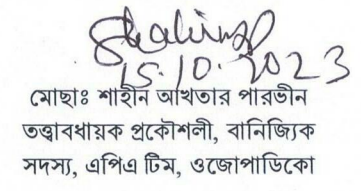 Shahin
15.10.2023
মোছাঃ শাহীন আখতার পারভীন
তত্ত্বাবধায়ক প্রকৌশলী, বানিজ্যিক
সদস্য, এপিএ টিম, ওজোপাডিকো